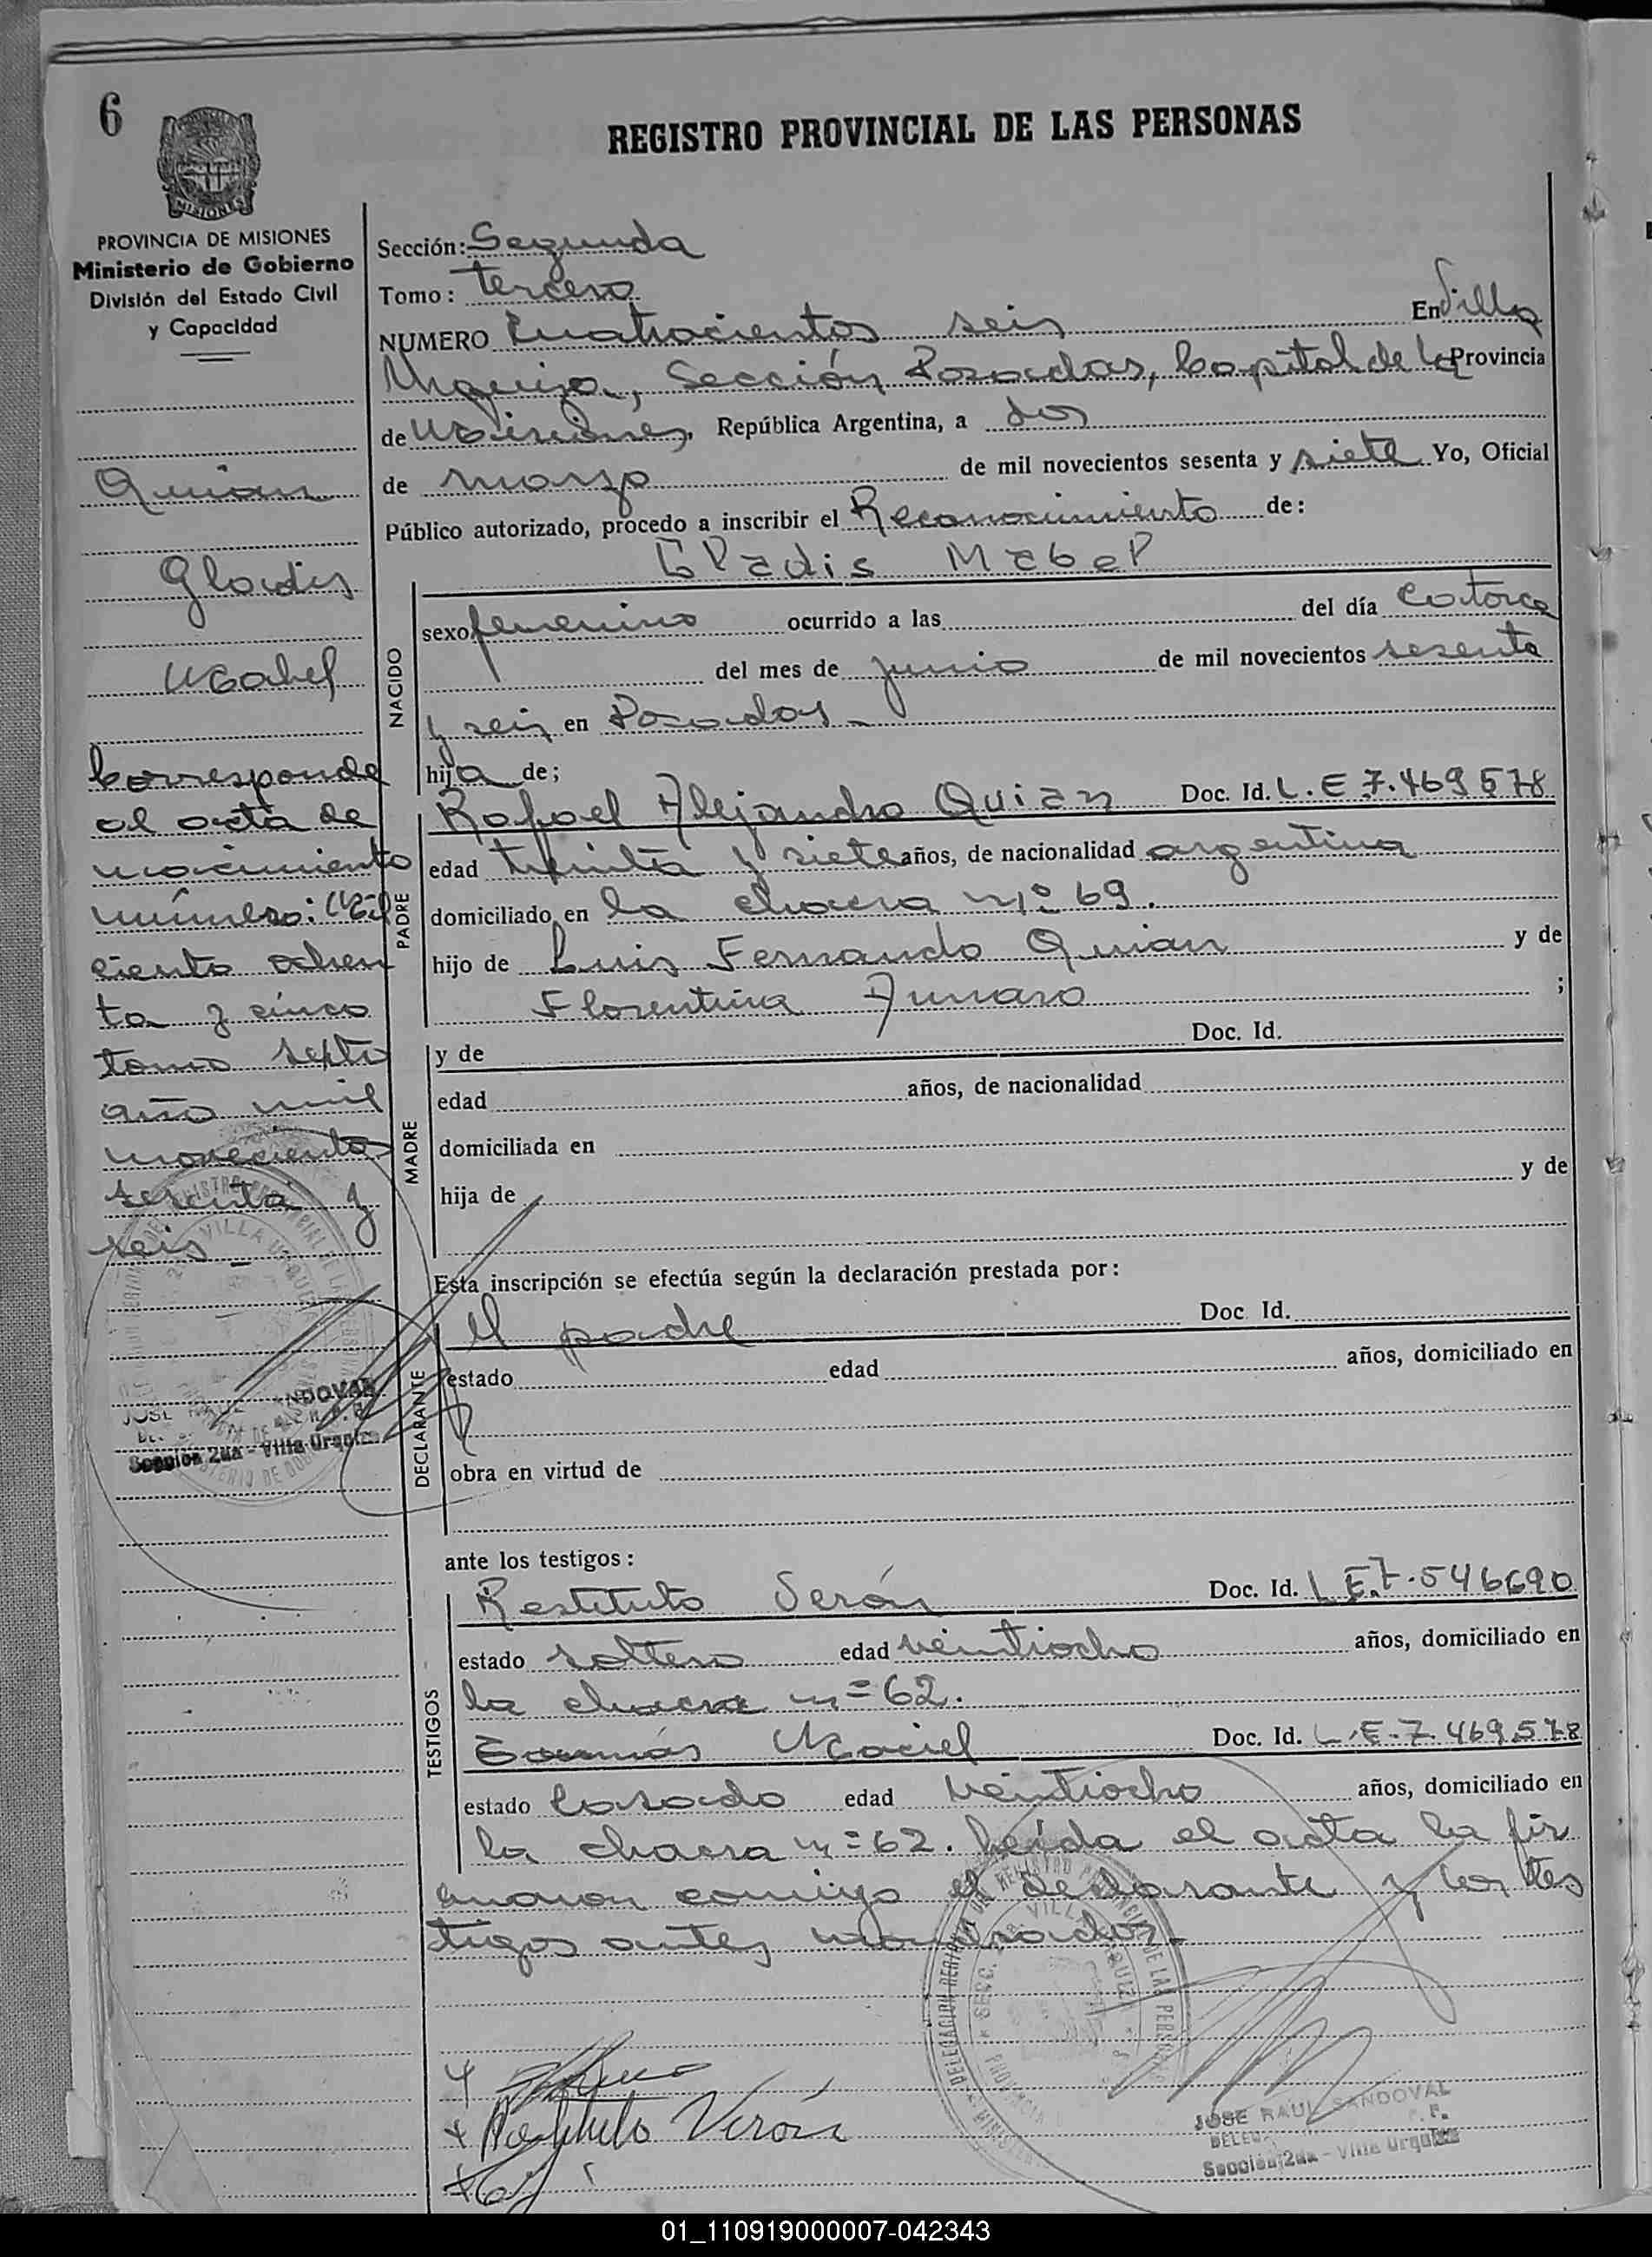 6
REGISTRO PROVINCIAL DE LAS PERSONAS
MISIONES
PROVINCIA DE MISIONES
Ministerio de Gobierno
División del Estado Civil
y Capacidad
Quian
Gladis
Mabel
Corresponde
al acta de
nacimiento
número: Mil
ciento ochen
ta y cinco
tomo septo
año mil
novecientos
sesenta y
seis
Sección 2da - Villa Urquiza
Sección: Segunda
Tomo: tercero
NUMERO Cuatrocientos seis En Villa
Urquiza, Sección Posadas, Capital de la Provincia
de Misiones, República Argentina, a dos
de marzo de mil novecientos sesenta y siete Yo, Oficial
Público autorizado, procedo a inscribir el Reconocimiento de:
Gladis Mabel
NACIDO
sexo femenino ocurrido a las del día catorce
del mes de junio de mil novecientos sesenta
y seis en Posadas -
hija de;
PADRE
Rafael Alejandro Quian Doc. Id. L.E 7.469578
edad treinta y siete años, de nacionalidad argentina
domiciliado en la chacra nº 69.
hijo de Luis Fernando Quian y de
Florentina ;
MADRE
y de Doc. Id.
edad años, de nacionalidad
domiciliada en
hija de y de
Esta inscripción se efectúa según la declaración prestada por:
DECLARANTE
El padre Doc. Id.
estado edad años, domiciliado en
obra en virtud de
ante los testigos:
TESTIGOS
Restituto Verón Doc. Id. L.E.7.546690
estado soltero edad veintiocho años, domiciliado en
la chacra n=62.
Tomás Maciel Doc. Id. L.E-7.469.578
estado Casado edad veintiocho años, domiciliado en
la chacra n=62. Leída el acta la fir
maron conmigo el declarante y los tes
tigos antes nombrados.-
Restituto Verón
JOSE RAUL SANDOVAL
Sección 2da - Villa Urquiza
01_110919000007-042343